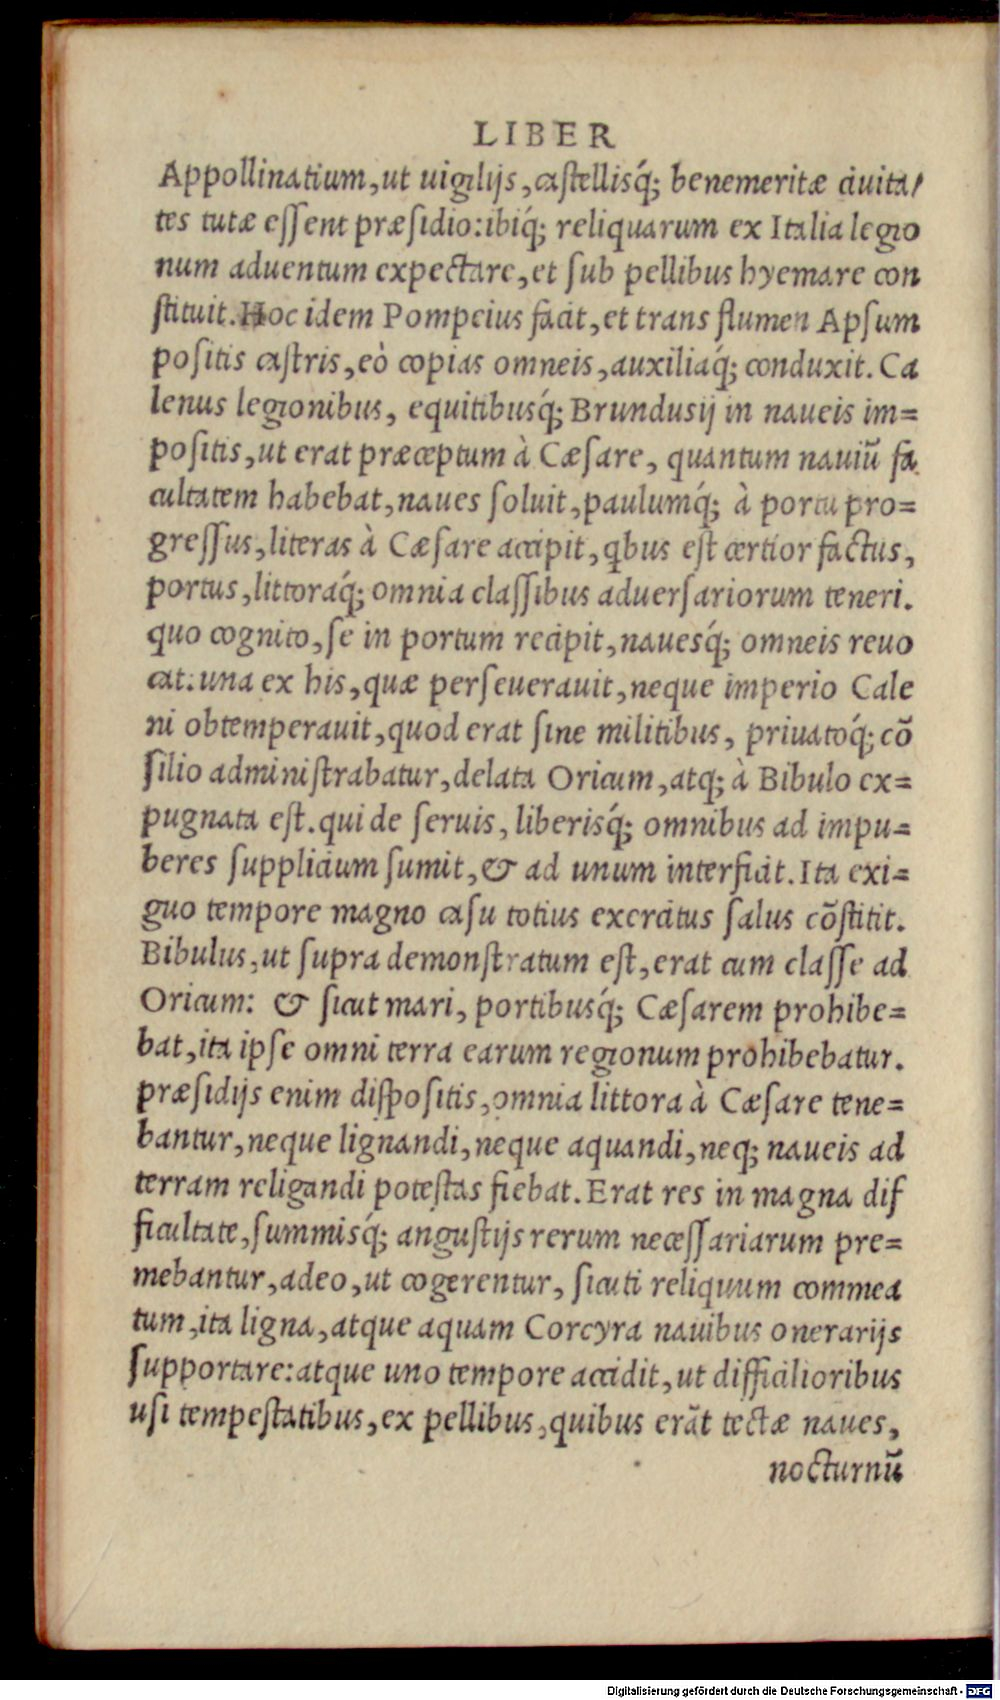 LIBER
Appollinatium, ut uigilijs, castellisq́; benemeritæ ciuita/
tes tutæ essent præsidio: ibiq́; reliquarum ex Italia legio
num aduentum expectare, et sub pellibus hyemare con
stituit. Hoc idem Pompeius facit, et trans flumen Apsum
positis castris, eò copias omneis, auxiliaq́; conduxit. Ca
lenus legionibus, equitibusq́; Brundusij in naueis im=
positis, ut erat præceptum à Cæsare, quantum nauiū fa
cultatem habebat, naues soluit, paulumq́; à portu pro=
gressus, literas à Cæsare accipit, qbus est certior factus,
portus, littoraq́; omnia classibus aduersariorum teneri.
quo cognito, se in portum recipit, nauesq́; omneis reuo
cat. una ex his, quæ perseuerauit, neque imperio Cale
ni obtemperauit, quod erat sine militibus, priuatoq́; cō
silio administrabatur, delata Oricum, atq; à Bibulo ex=
pugnata est. qui de seruis, liberisq́; omnibus ad impu=
beres supplicium sumit, & ad unum interficit. Ita exi=
guo tempore magno casu totius exercitus salus cōstitit.
Bibulus, ut supra demonstratum est, erat cum classe ad
Oricum: & sicut mari, portibusq́; Cæsarem prohibe=
bat, ita ipse omni terra earum regionum prohibebatur.
præsidijs enim dispositis, omnia littora à Cæsare tene=
bantur, neque lignandi, neque aquandi, neq; naueis ad
terram religandi potestas fiebat. Erat res in magna dif
ficultate, summisq́; angustijs rerum necessariarum pre=
mebantur, adeo, ut cogerentur, sicuti reliquum commea
tum, ita ligna, atque aquam Corcyra nauibus onerarijs
supportare: atque uno tempore accidit, ut difficilioribus
usi tempestatibus, ex pellibus, quibus erāt tectæ naues,
nocturnū
Digitalisierung gefördert durch die Deutsche Forschungsgemeinschaft - DFG